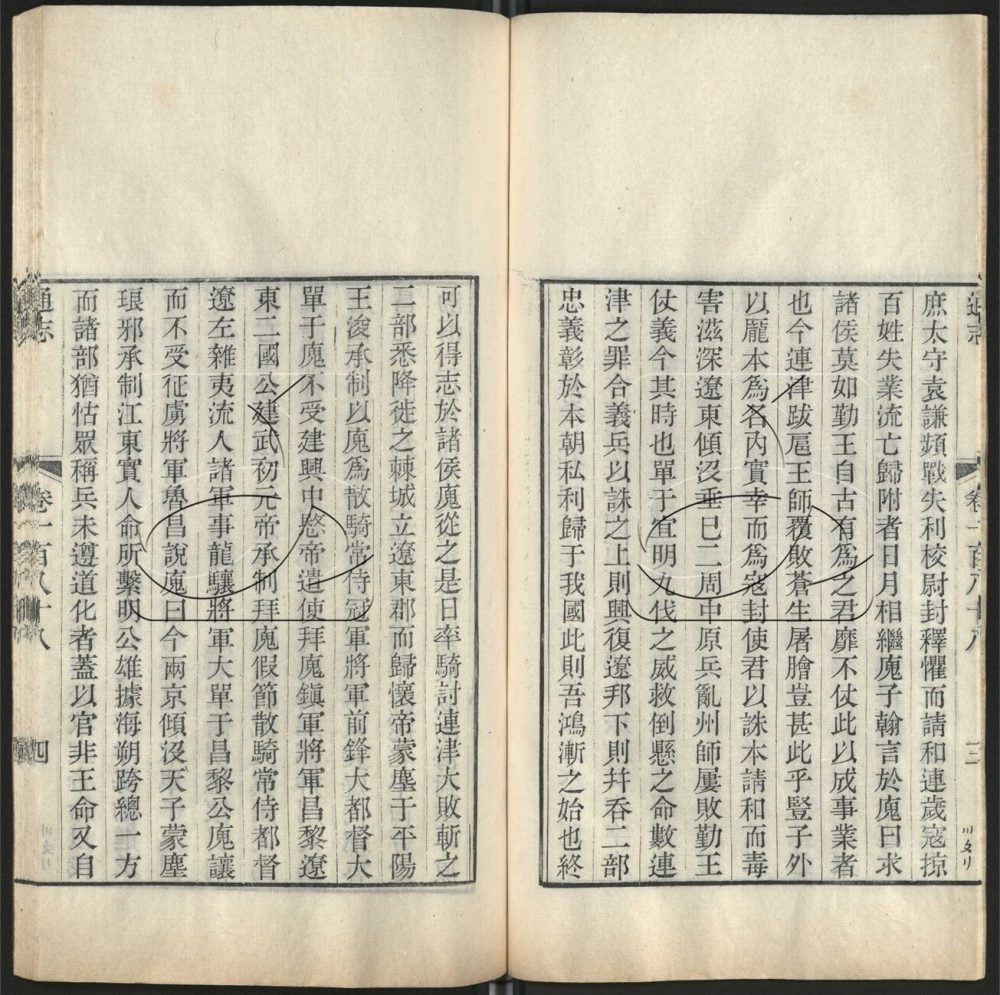 通志
卷一百八十八
三
庶太守袁謙頻戰失利校尉封釋懼而請和連歲寇掠
百姓失業流亡歸附者日月相繼廆子翰言於廆曰求
諸侯莫如勤王自古有為之君靡不仗此以成事業者
也今連津跋扈王師覆敗蒼生屠膾豈甚此乎豎子外
以龐本為名內實幸而為寇封使君以誅本請和而毒
害滋深遼東傾沒垂巳二周中原兵亂州師屢敗勤王
仗義今其時也單于宜明九伐之威救倒懸之命數連
津之罪合義兵以誅之上則興復遼邦下則幷吞二部
忠義彰於本朝私利歸于我國此則吾鴻漸之始也終
可以得志於諸侯廆從之是日率騎討連津大敗斬之
二部悉降徙之棘城立遼東郡而歸懷帝蒙塵于平陽
王浚承制以廆為散騎常侍冠軍將軍前鋒大都督大
單于廆不受建興中愍帝遣使拜廆鎭軍將軍昌黎遼
東二國公建武初元帝承制拜廆假節散騎常侍都督
遼左雜夷流人諸軍事龍驤將軍大單于昌黎公廆讓
而不受征虜將軍魯昌說廆曰今兩京傾沒天子蒙塵
琅邪承制江東實人命所繫明公雄據海朔跨總一方
而諸部猶怙眾稱兵未遵道化者蓋以官非王命又自
通志
卷一百八十八
四